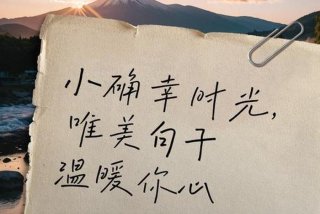 小确幸时光，
唯美句子
温暖你心